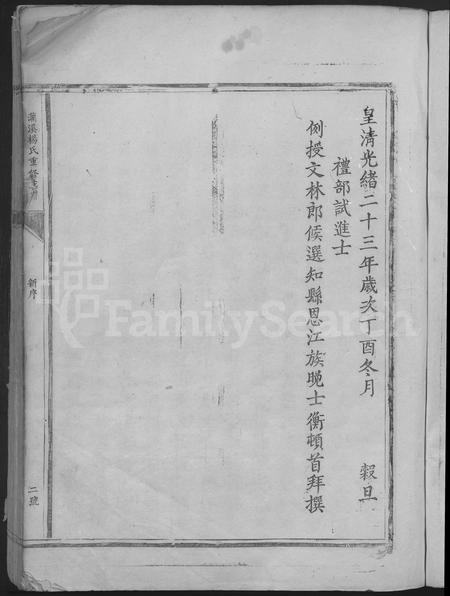 皇清光緒二十三年歲次丁酉冬月　　穀旦
禮部試進士
例授文林郎候選知縣恩江族晚士衡頓首拜撰
溪楊氏重修
新序
二號
FamilySearch